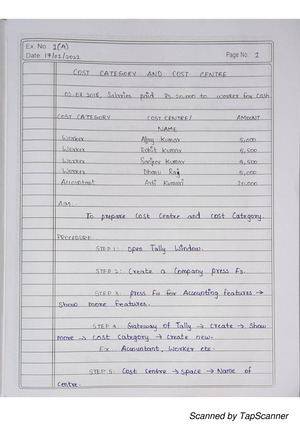 Ex. No. 1(A)
Date 17/02/2022
Page No: 1
COST CATEGORY AND COST CENTRE
Salaries paid Rs. 20,000 to worker for cash
COST CATEGORY COST CENTRE/ AMOUNT
NAME
Worker Ajay Kumar 5,000
Worker Rohit Kumar 5,500
Worker Sanjeev Kumar 4,500
Worker Dhanu Raj 5,000
Accountant Arti Kumari 20,000
AIM:
To prepare Cost Centre and cost Category.
PROCEDURE:
STEP 1: Open Tally Window.
STEP 2: Create a Company press F3.
STEP 3: press F11 for Accounting features →
Show more features.
STEP 4: Gateway of Tally → Create → Show
more → Cost Category → Create new.
Ex: Accountant, Worker etc.
STEP 5: Cost Centre → Space → Name of
Centre.
Scanned by TapScanner